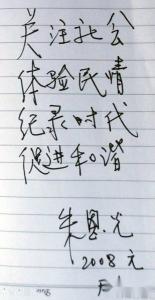 关注社会
体验民情
纪录时代
促进和谐
朱恩光
2008元